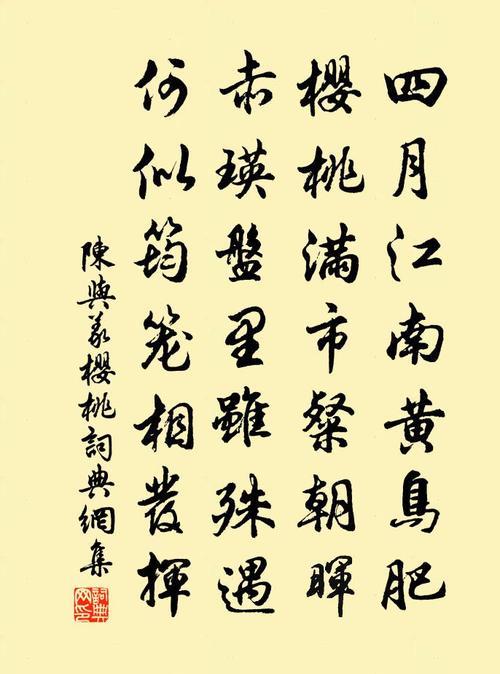 四月江南黄鳥肥
櫻桃滿市粲朝暉
赤瑛盤里雖殊遇
何似筠笼相發揮
陳與義櫻桃詞典網集